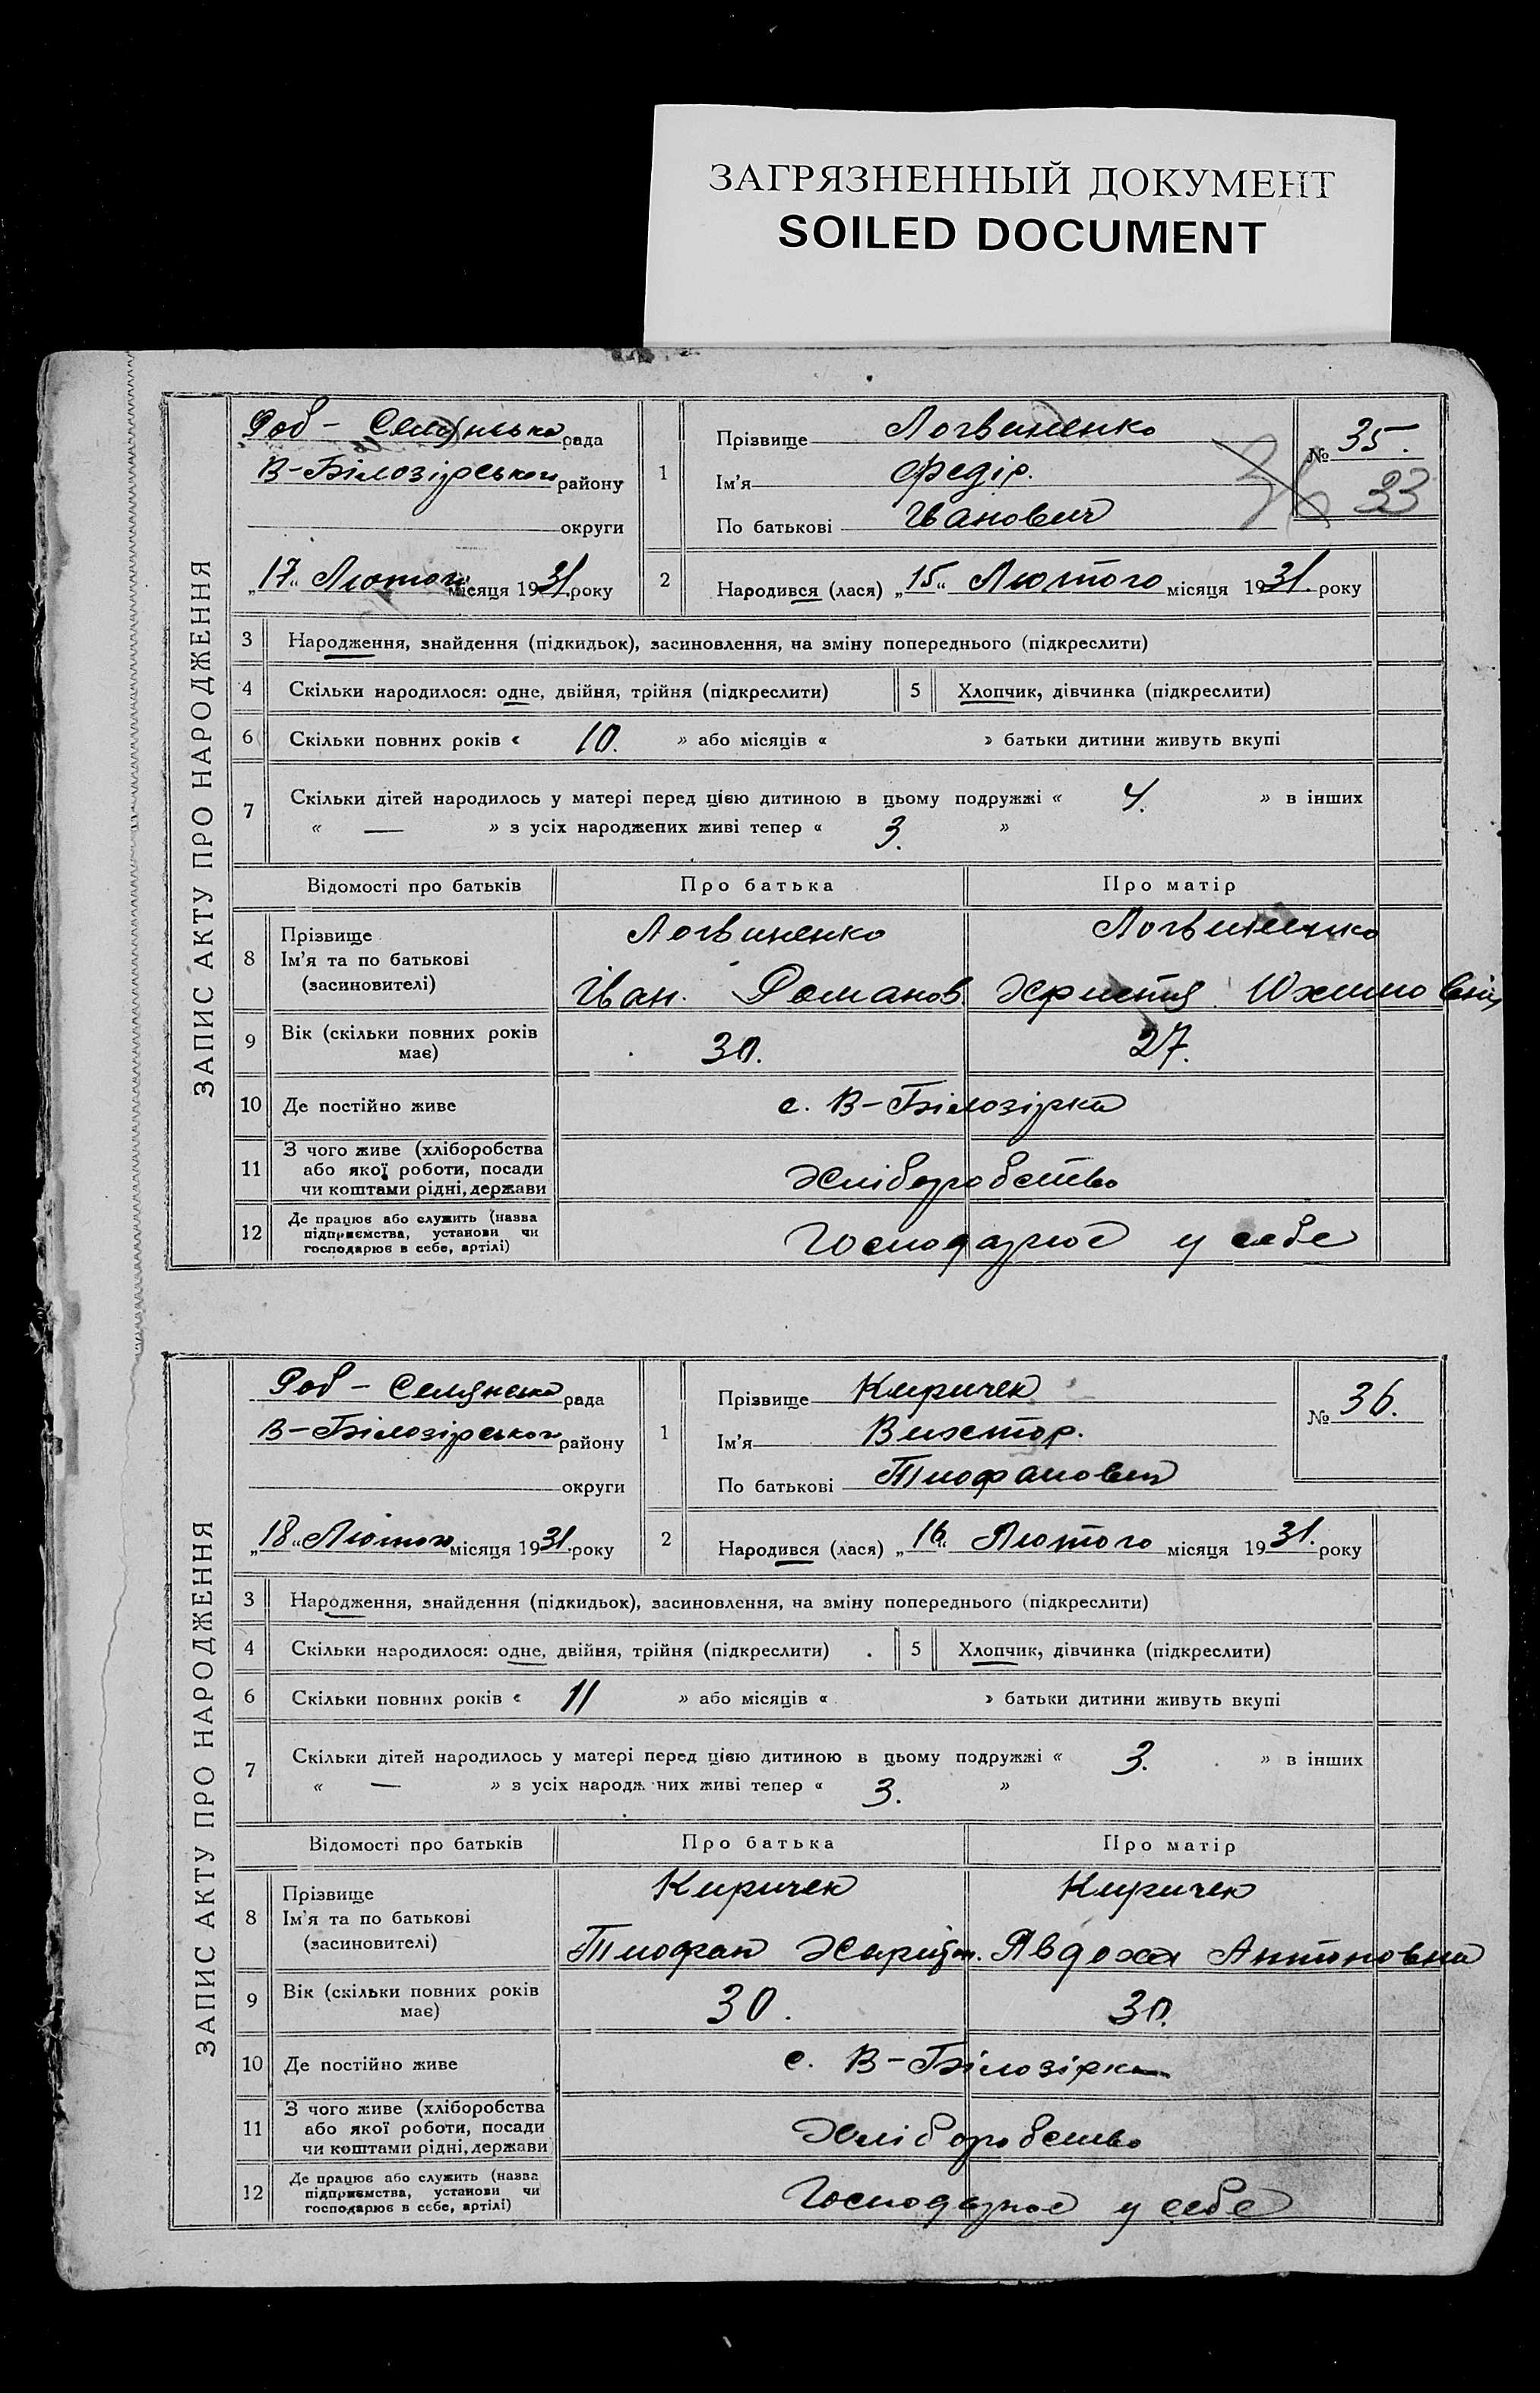 ЗАГРЯЗНЕННЫЙ ДОКУМЕНТ
SOILED DOCUMENT
ЗАПИС АКТУ ПРО НАРОДЖЕННЯ
Роб - Селянська рада
В-Білозірського району
округи
„17“ Лютого місяця 1931. року
1
Прізвище Логвиненко
Ім'я Федір.
По батькові Іванович
№ 35.
33
2 Народився (лася) „15“ Лютого місяця 1931. року
3 Народження, знайдення (підкидьок), засиновлення, на зміну попереднього (підкреслити)
4 Скільки народилося: одне, двійня, трійня (підкреслити) 5 Хлопчик, дівчинка (підкреслити)
6 Скільки повних років « 10. » або місяців « » батьки дитини живуть вкупі
7 Скільки дітей народилось у матері перед цією дитиною в цьому подружжі « 4. » в інших
« — » з усіх народжених живі тепер « 3. »
Відомості про батьків Про батька Про матір
8 Прізвище Логвиненко Логвиненко
Ім'я та по батькові
(засиновителі) Іван. Романов Христя Юхимовна
9 Вік (скільки повних років
має) 30. 27.
10 Де постійно живе с. В-Білозірка
11 З чого живе (хліборобства
або якої роботи, посади
чи коштами рідні, держави Хліборобство
12 Де працює або служить (назва
підприємства, установи чи
господарює в себе, артілі) Господарює у себе
ЗАПИС АКТУ ПРО НАРОДЖЕННЯ
Роб - Селянська рада
В-Білозірського району
округи
„18“ Лютого місяця 1931. року
1
Прізвище Киричек
Ім'я Виктор.
По батькові Тиофанович
№ 36.
2 Народився (лася) „16“ Лютого місяця 1931. року
3 Народження, знайдення (підкидьок), засиновлення, на зміну попереднього (підкреслити)
4 Скільки народилося: одне, двійня, трійня (підкреслити) 5 Хлопчик, дівчинка (підкреслити)
6 Скільки повних років « 11 » або місяців « » батьки дитини живуть вкупі
7 Скільки дітей народилось у матері перед цією дитиною в цьому подружжі « 3. » в інших
« — » з усіх народж них живі тепер « 3. »
Відомості про батьків Про батька Про матір
8 Прізвище Киричек Киричек
Ім'я та по батькові
(засиновителі) Тиофан Харитон. Явдоха Антоновна
9 Вік (скільки повних років
має) 30. 30.
10 Де постійно живе с. В-Білозірка
11 З чого живе (хліборобства
або якої роботи, посади
чи коштами рідні, держави Хліборобство
12 Де працює або служить (назва
підприємства, установи чи
господарює в себе, артілі) Господарює у себе